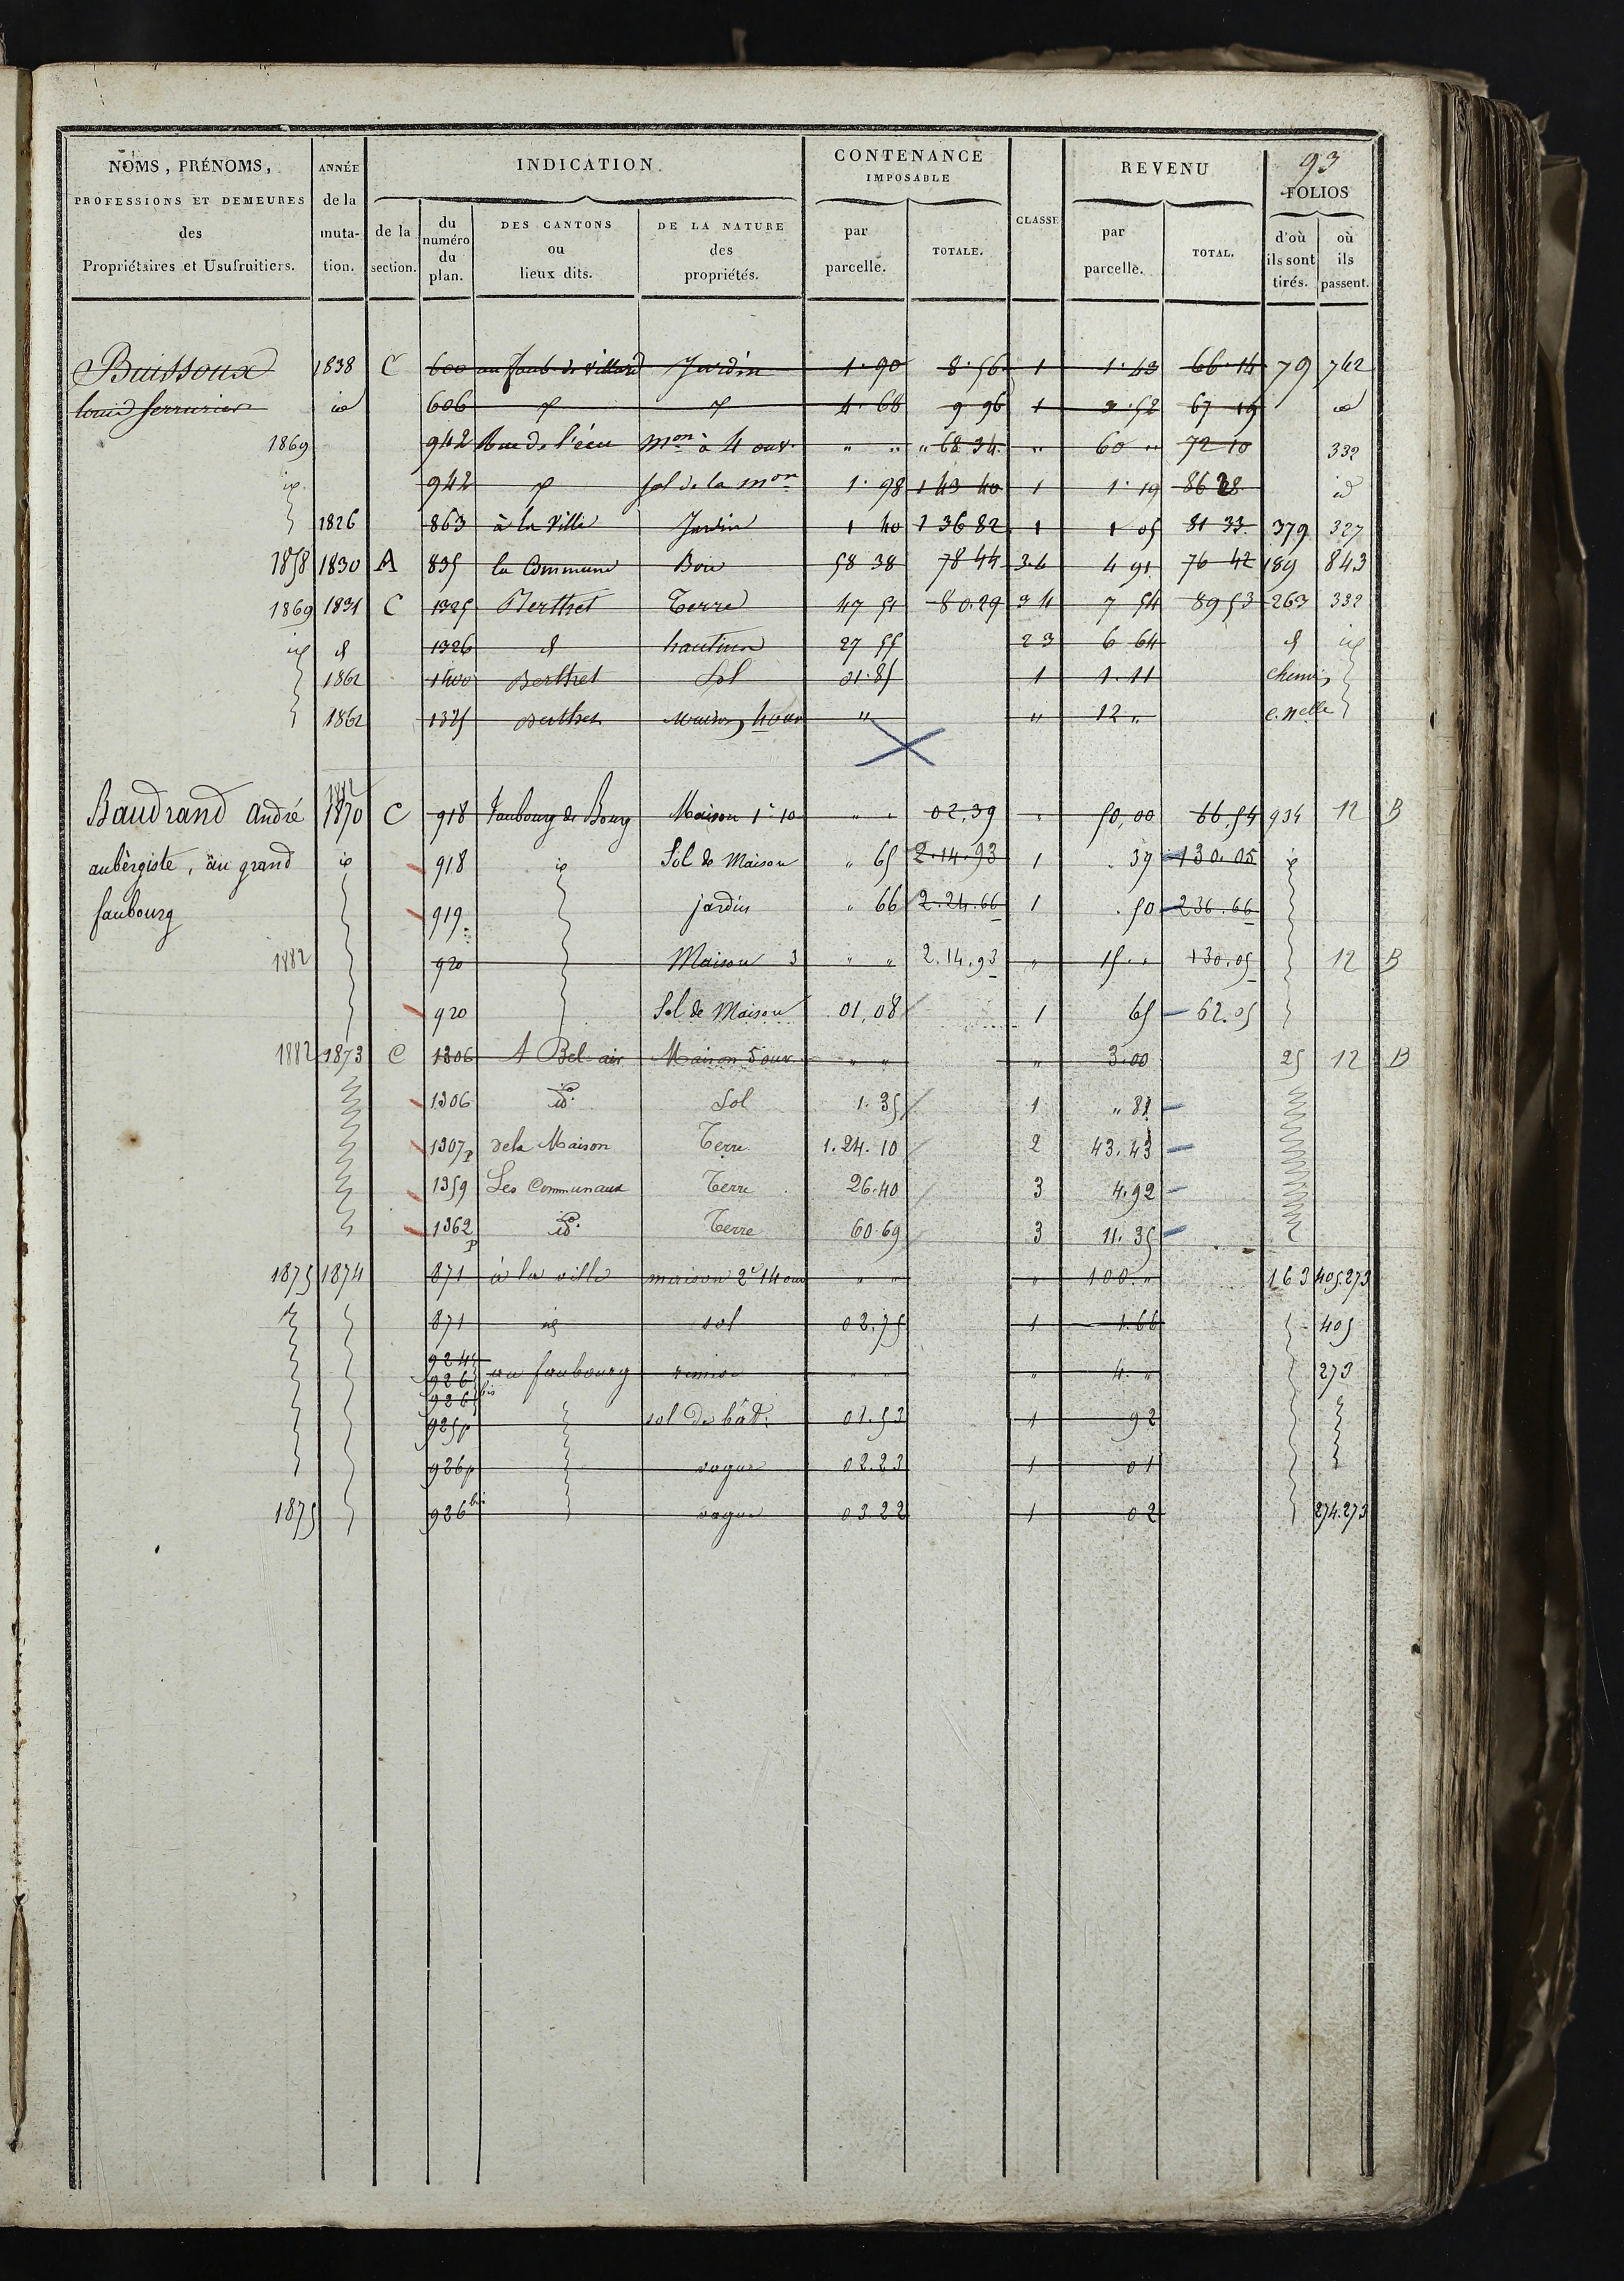 93
NOMS, PRÉNOMS, PROFESSIONS ET DEMEURES des Propriétaires et Usufruitiers.
ANNÉE de la muta-tion.
INDICATION
de la section.
du numéro du plan.
DES CANTONS ou lieux dits.
DE LA NATURE des propriétés.
CONTENANCE IMPOSABLE
par parcelle.
TOTALE.
CLASSE
REVENU
par parcelle.
TOTAL.
FOLIOS
d'où ils sont tirés.
où ils passent.
Buissoux 1838 C 600 au faub. de Villard Jardin 1.90 8.56 1 1.43 66.14 79 742
louis serrurier id 606 4.68 9 96 1 3.52 67 19 id
1869 942 Rue de l'écu mon à 4 ouv. " " " 68 34 " 60 " 72 10 332
id 942 sol de la mon 1.98 1 43 40 1 1.19 86 28 id
1826 863 à la Ville Jardin 1 40 1 36 82 1 1 05 81 33 379 327
1858 1830 A 835 la Commune Bois 58 38 78 44 3.4 4 91 76 42 189 843
1869 1831 C 1325 Berthet Terre 47 51 80.29 3 4 7 54 89 53 263 332
id 1326 hautins 27 55 2 3 6 64 id
1862 1400 Berthet Sol 01.85 1 1.11 chemin
1862 1325 Berthet Maison, 4 ouv " " 12 " c. nelle
1882
Baudrand André 1870 C 918 Faubourg de Bourg Maison 1e 10 " " 02,39 " 50,00 66.54 934 12 B
aubergiste, au grand id 918 id Sol de Maison " 65 2.14.93 1 . 39 130.05 id
faubourg 919 jardin " 66 2.24.66 1 . 50 236.66
1882 920 Maison 3 " " 2.14.93 " 15 " 130.05 12 B
920 Sol de Maison 01,08 1 65 62.05
1882 1873 C 1306 A Bel-air Maison 5 ouv. " " " 3.00 25 12 B
1306 id. Sol 1.35 1 " 81
1307p de la Maison Terre 1.24.10 2 43.43
1359 Les Communaux Terre 26.40 3 4.92
1362p id. Terre 60.69 3 11.35
1875 1874 871 à la ville maison 2e 14 ouv " " " 100 " 163 405.273
871 id sol 02.75 1 1.66 405
924
926 au faubourg remise " " " 4. " 273
926 bis
925p sol de bât. 01.53 1 92
926p vague 02.23 1 01
1875 926 bis vague 03.22 1 02 274.273